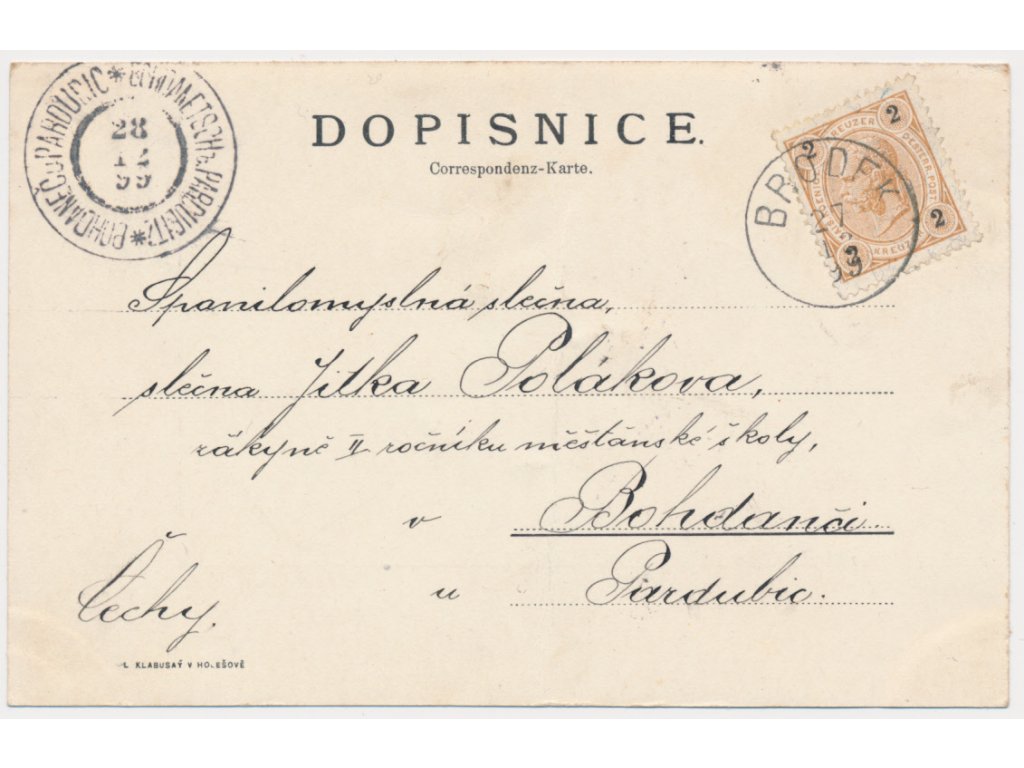 BOHDANEČ u PARDUBIC * BOHDANETSCH b. PARDUBITZ *
28
12
99
DOPISNICE.
Correspondenz-Karte.
2 KREUZER 2
OESTERR. POST
2 KREUZER 2
BRODEK
27
99
Spanilomyslná slečna,
slečna Jitka Polákova,
žákyně II ročníku měšťánské školy,
v Bohdanči
Čechy, u Pardubic.
L. KLABUSAÝ V HOLEŠOVĚ